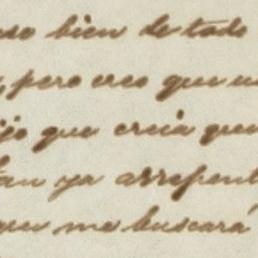 so bien de todo
, pero creo que u
ijo que creia que
tan ya arrepent
que me buscará